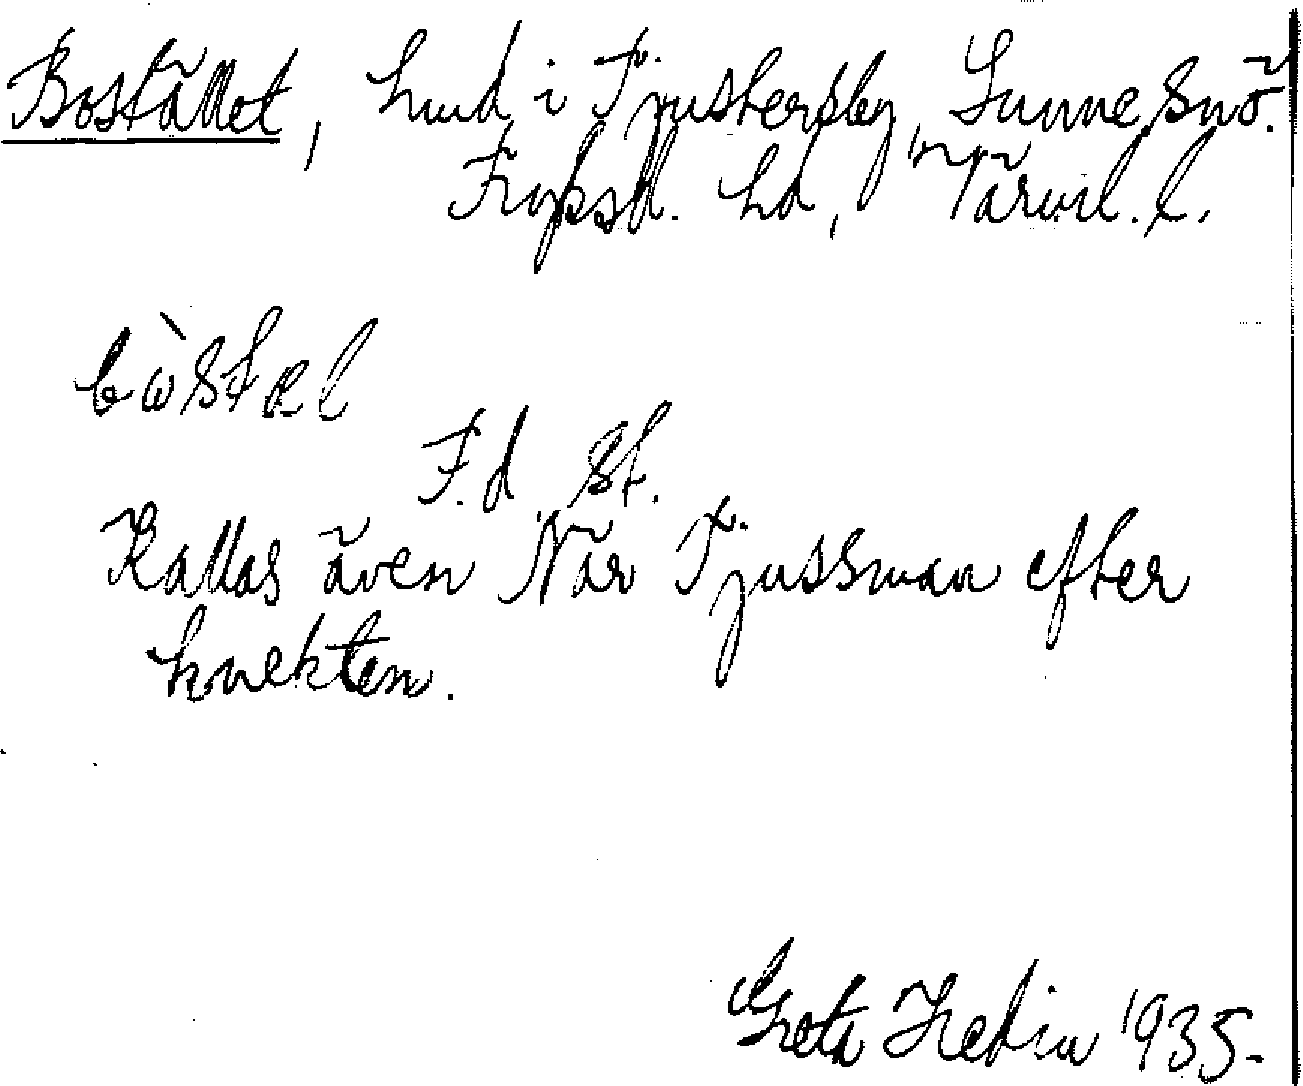 Bostället, hmd i Tjustersby, Sunne, snö.
Fryksd. hd, Värml. l.
bòstæl
F.d. st.
Kallas även När Tjussman efter
knekten.
Greta Hedin 1935.